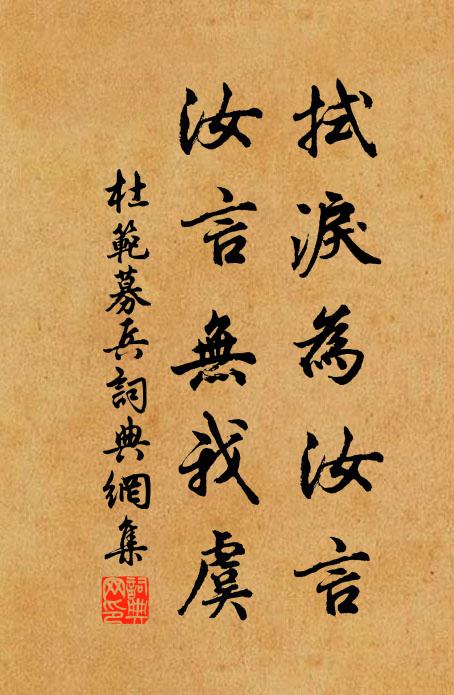 拭淚為汝言
汝言無我虞
杜範募兵詞典網集
詞典網印